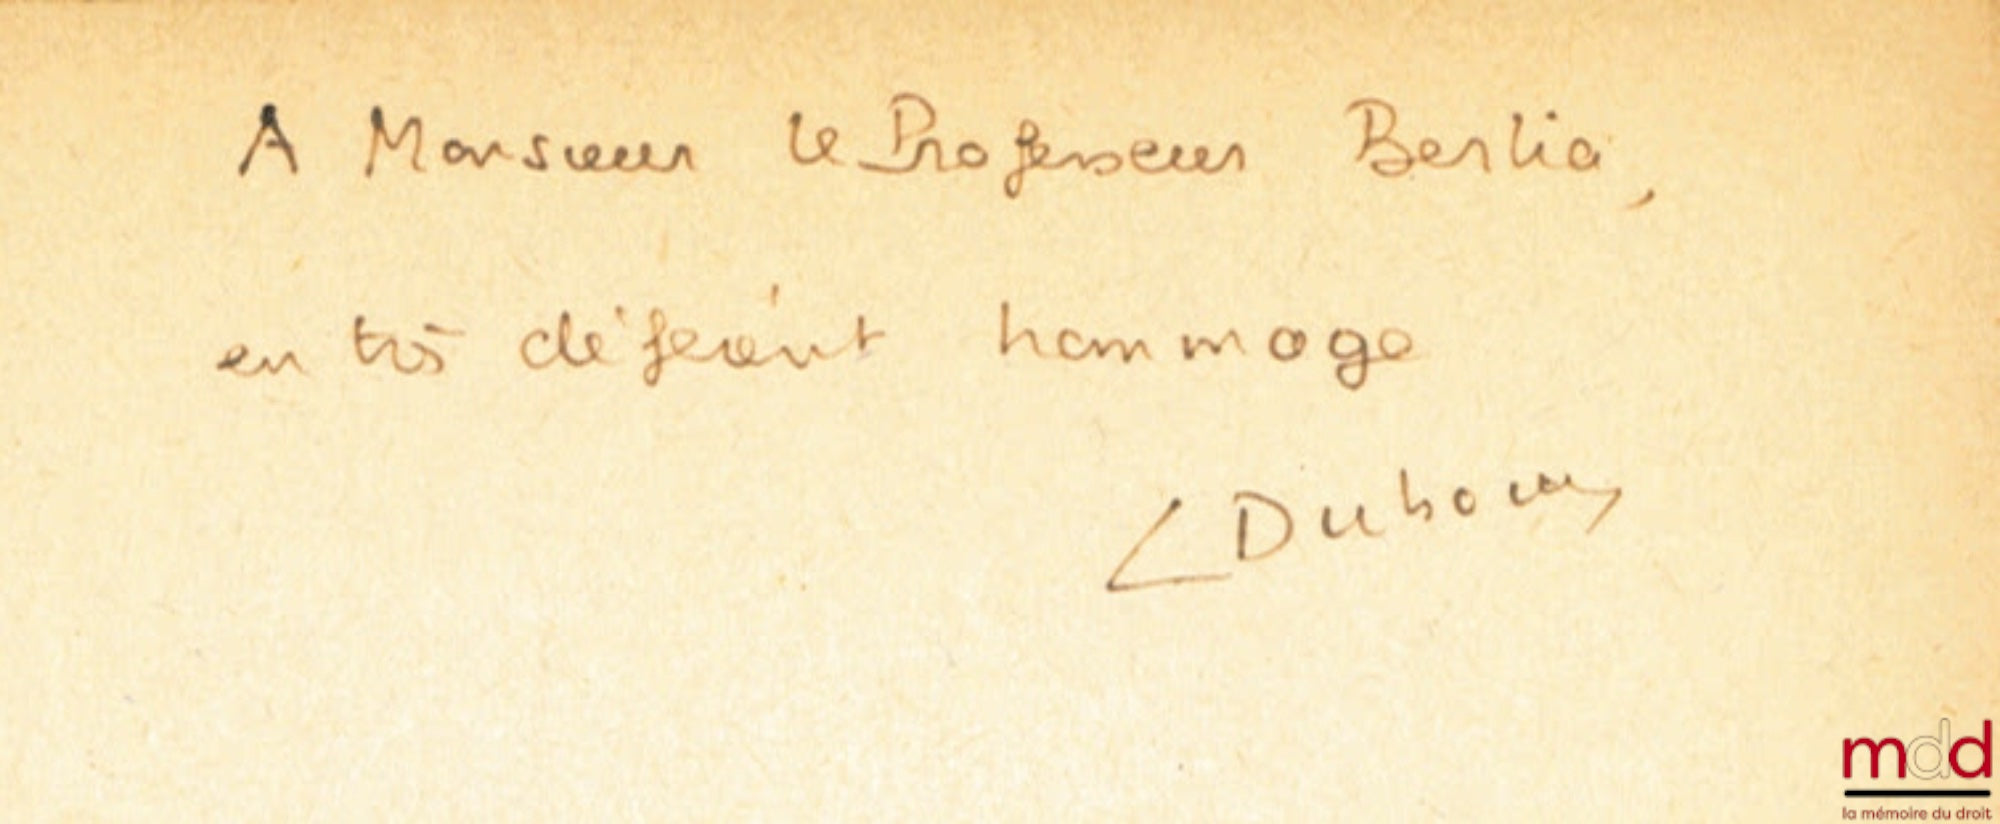 A Monsieur le Professeur Berlia,
en très déférent hommage
L Dubouis
mdd
la mémoire du droit